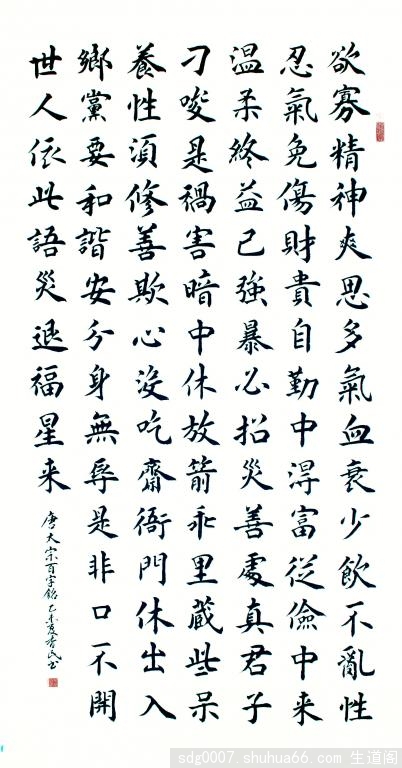 欲寡精神爽思多氣血衰少飲不亂性
忍氣免傷財貴自勤中得富從儉中来
溫柔終益己強暴必招災善處真君子
刁唆是禍害暗中休放箭乖里藏些呆
養性須修善欺心沒吃齋衙門休出入
鄉黨要和諧安分身無辱是非口不開
世人依此語災退福星来
唐太宗百字銘 乙未夏
sdg0007.shuhua66.com 生道阁